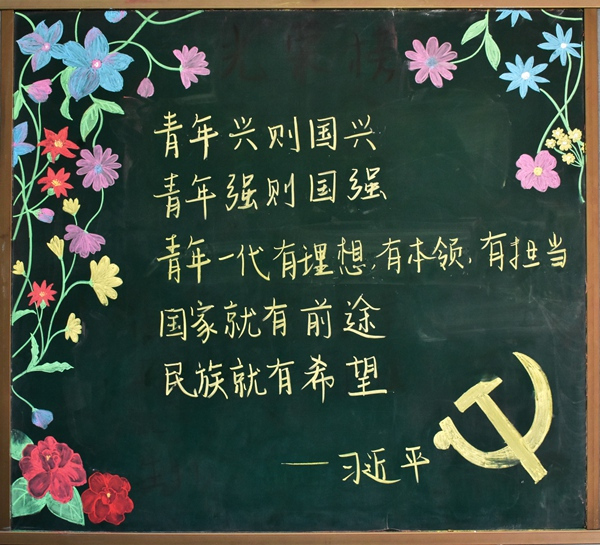 青年兴则国兴
青年强则国强
青年一代有理想,有本领,有担当
国家就有前途
民族就有希望
——习近平